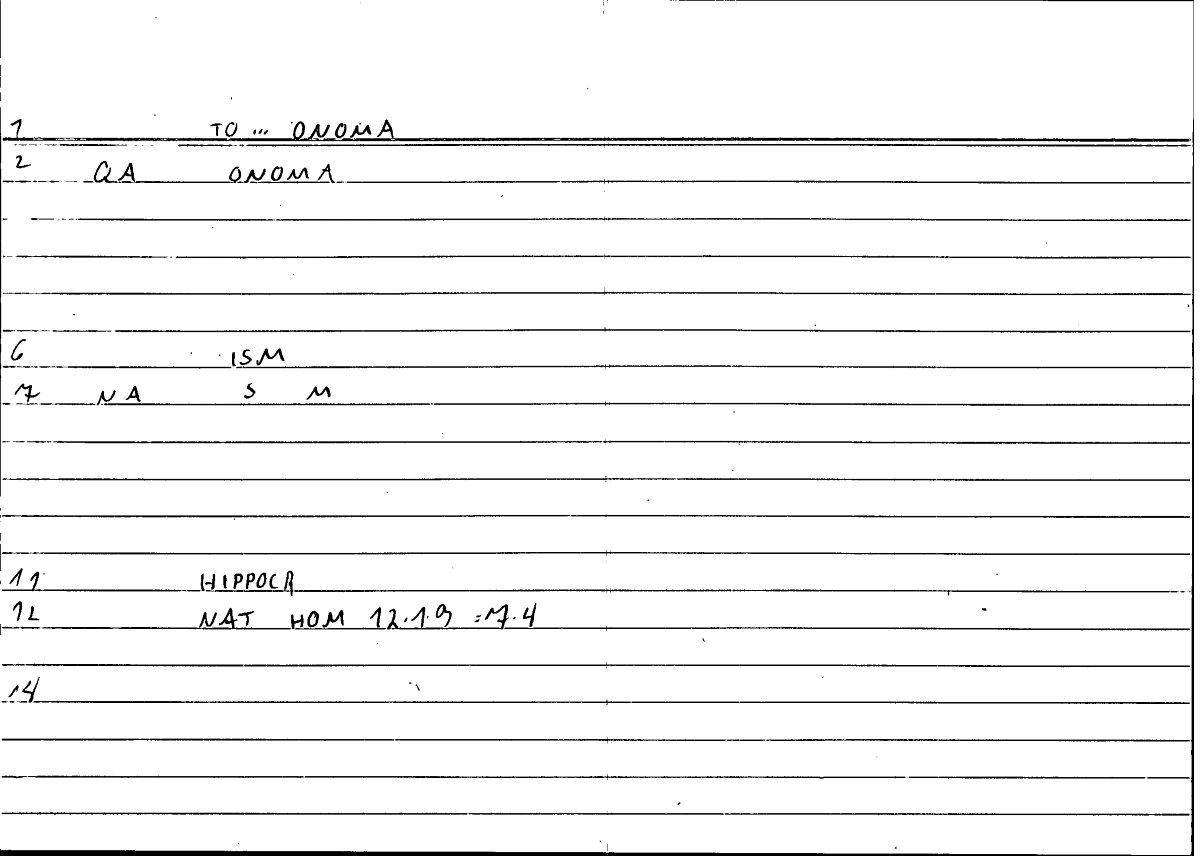 1 TO ... ONOMA
2 QA ONOMA
6 ISM
7 NA S M
11 HIPPOCR
12 NAT HOM 12.19 =7.4
14